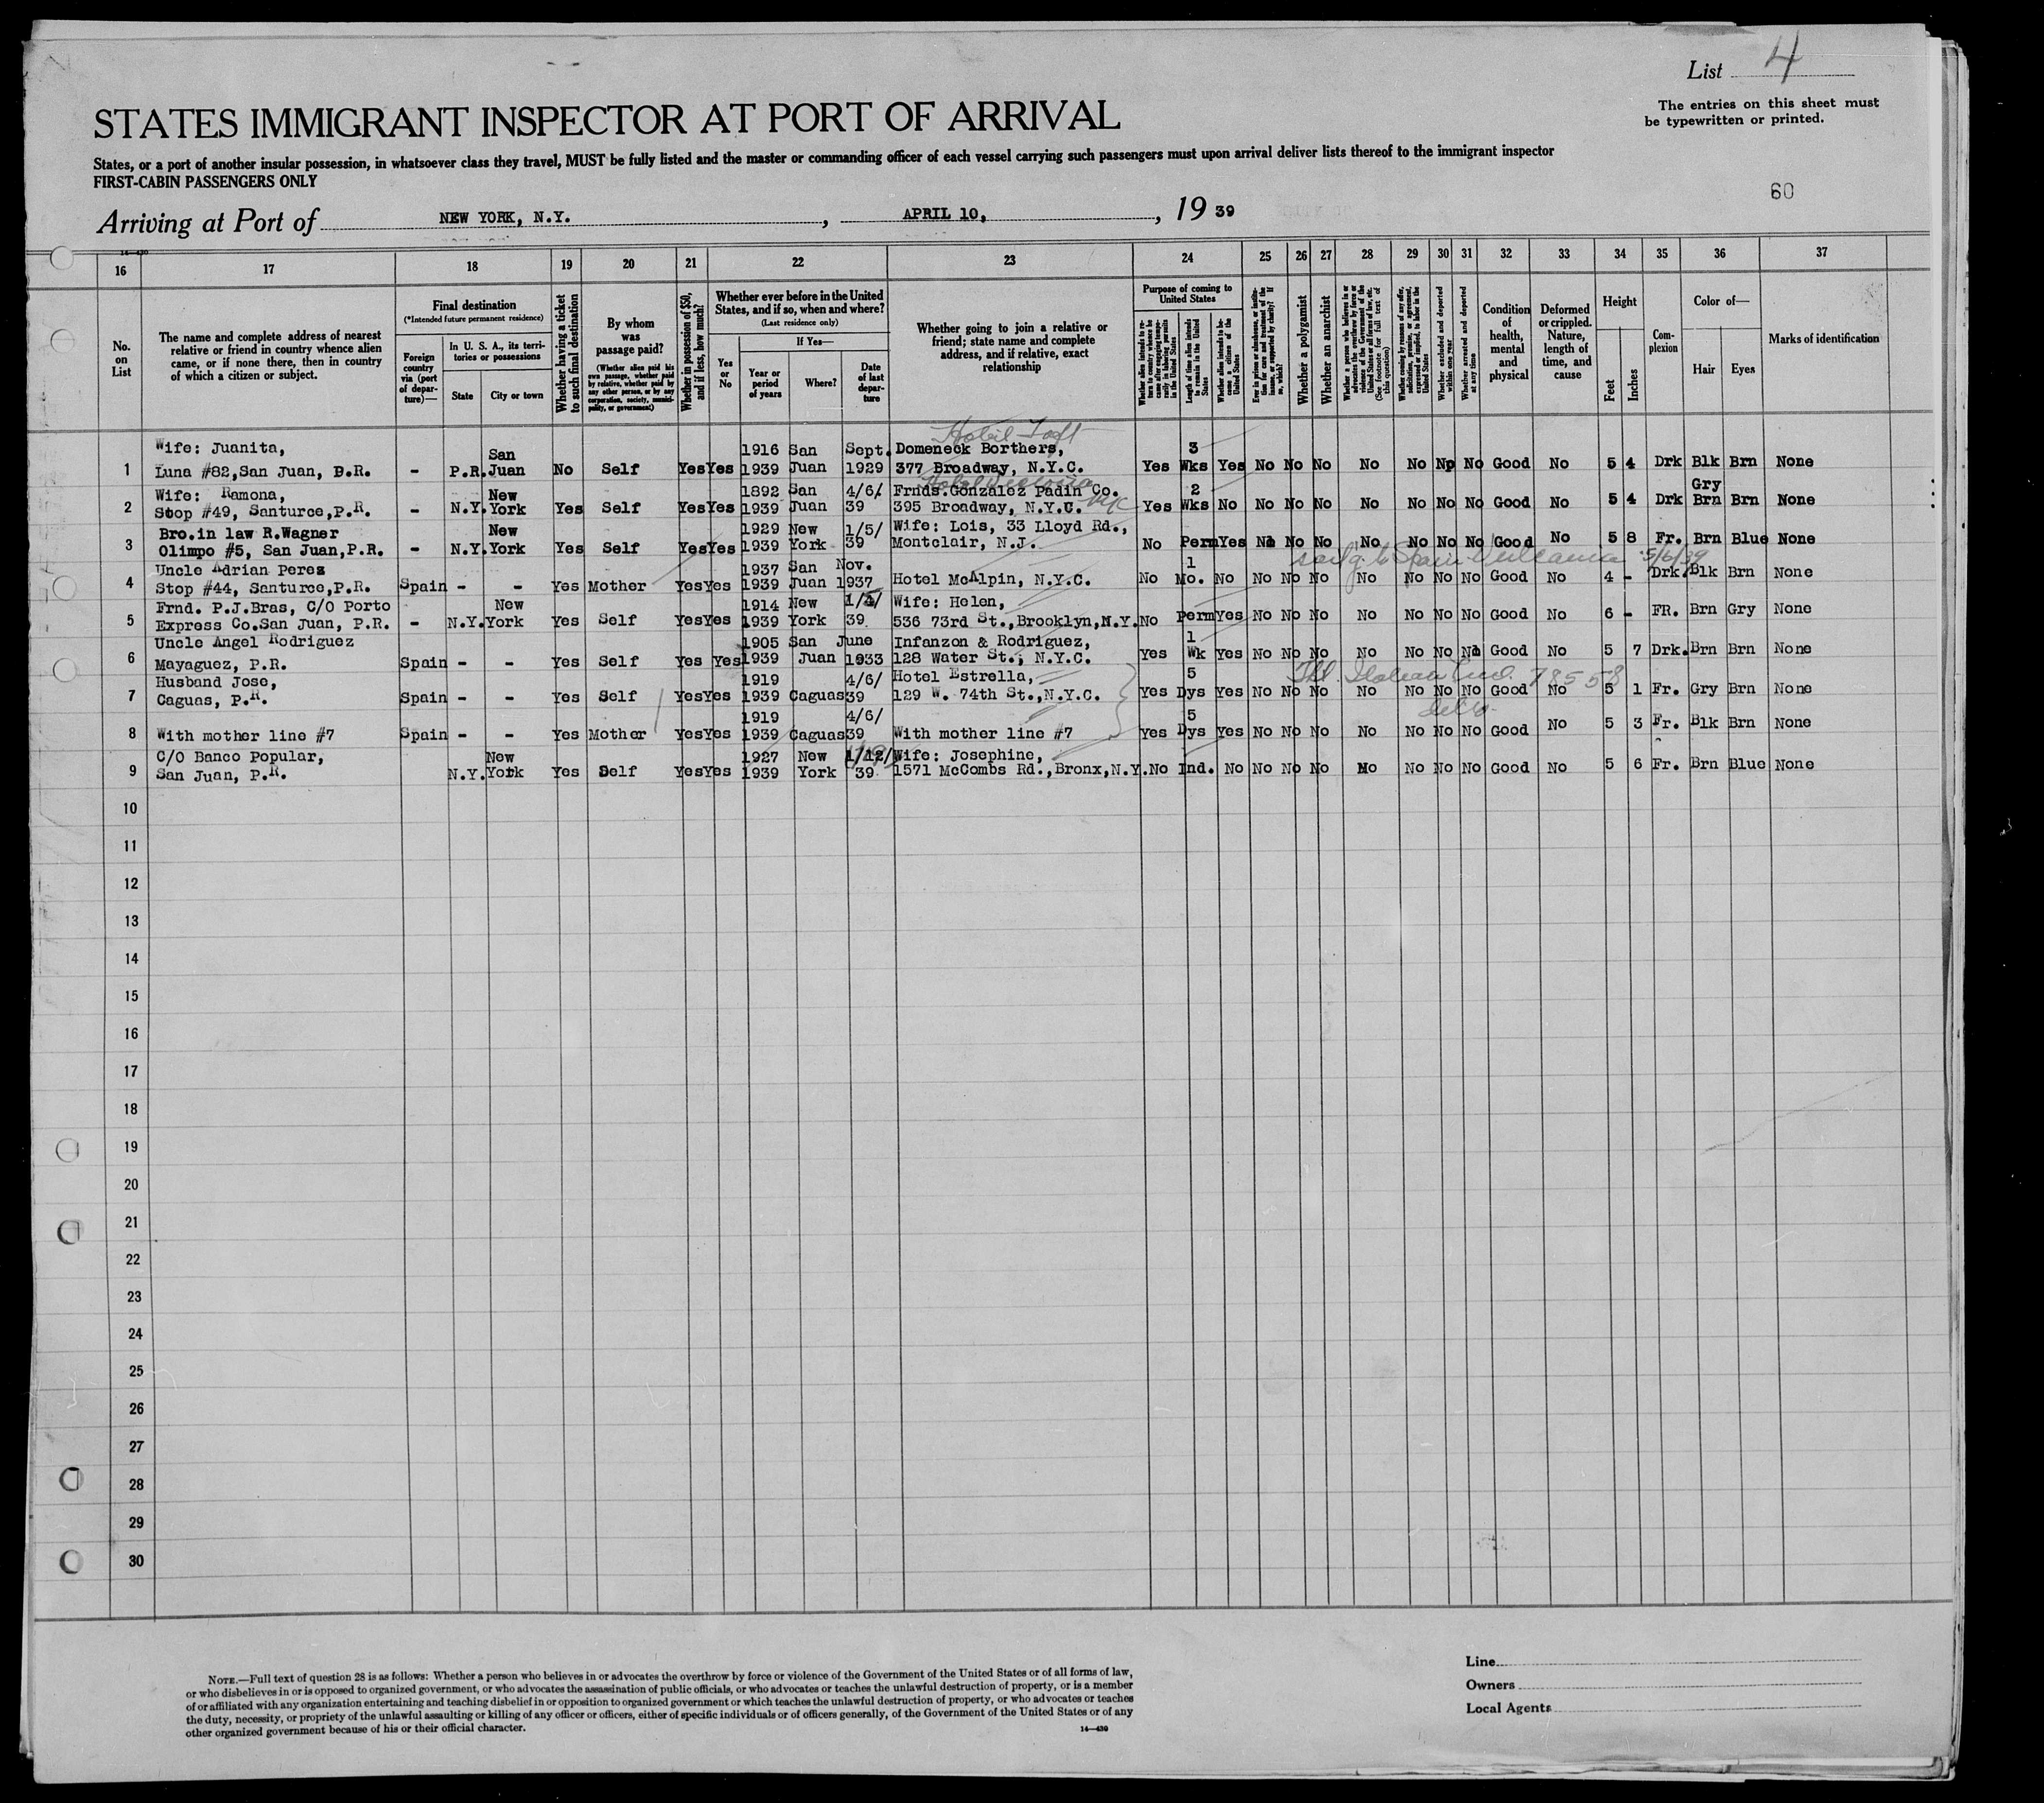 List 4
The entries on this sheet must
be typewritten or printed.
STATES IMMIGRANT INSPECTOR AT PORT OF ARRIVAL
States, or a port of another insular possession, in whatsoever class they travel, MUST be fully listed and the master or commanding officer of each vessel carrying such passengers must upon arrival deliver lists thereof to the immigrant inspector
FIRST-CABIN PASSENGERS ONLY
60
Arriving at Port of NEW YORK, N.Y. , APRIL 10, , 19 39
14—430
16 17 18 19 20 21 22 23 24 25 26 27 28 29 30 31 32 33 34 35 36 37
No. on List
The name and complete address of nearest relative or friend in country whence alien came, or if none there, then in country of which a citizen or subject.
Final destination
(*Intended future permanent residence)
Foreign country via (port of departure)—
In U. S. A., its territories or possessions
State
City or town
Whether having a ticket to such final destination
By whom was passage paid?
(Whether alien paid his own passage, whether paid by relative, whether paid by any other person, or by any corporation, society, municipality, or government)
Whether in possession of $50, and if less, how much?
Whether ever before in the United States, and if so, when and where?
(Last residence only)
Yes or No
If Yes—
Year or period of years
Where?
Date of last departure
Whether going to join a relative or friend; state name and complete address, and if relative, exact relationship
Purpose of coming to United States
Length of time alien intends to remain in the United States
Whether alien intends to become a citizen of the United States
Whether a polygamist
Whether an anarchist
Whether excluded and deported within one year
Whether arrested and deported at any time
Condition of health, mental and physical
Deformed or crippled. Nature, length of time, and cause
Height
Feet
Inches
Complexion
Color of—
Hair
Eyes
Marks of identification
Wife: Juanita, San 1916 San Sept. Domeneck Borthers, 3
1 Luna #82,San Juan, P.R. - P.R. Juan No Self Yes Yes 1939 Juan 1929 377 Broadway, N.Y.C. Yes Wks Yes No No No No No No No Good No 5 4 Drk Blk Brn None
Wife: Ramona, New 1892 San 4/6/ Frnds.Gonzalez Padin Co. 2 Gry
2 Stop #49, Santurce,P.R. - N.Y. York Yes Self Yes Yes 1939 Juan 39 395 Broadway, N.Y.C. Yes Wks No No No No No No No No Good No 5 4 Drk Brn Brn None
Bro.in law R.Wagner New 1929 New 1/5/ Wife: Lois, 33 Lloyd Rd.,
3 Olimpo #5, San Juan,P.R. - N.Y. York Yes Self Yes Yes 1939 York 39 Montclair, N.J. No Perm Yes No No No No No No No Good No 5 8 Fr. Brn Blue None
Uncle Adrian Perez 1937 San Nov. 1 5/6/39
4 Stop #44, Santurce,P.R. Spain - - Yes Mother Yes Yes 1939 Juan 1937 Hotel McAlpin, N.Y.C. No Mo. No No No No No No No No Good No 4 - Drk. Blk Brn None
Frnd. P.J.Bras, C/O Porto New 1914 New Wife: Helen,
5 Express Co.San Juan, P.R. - N.Y. York Yes Self Yes Yes 1939 York 39 536 73rd St.,Brooklyn,N.Y. No Perm Yes No No No No No No No Good No 6 - FR. Brn Gry None
Uncle Angel Rodriguez 1905 San June Infanzon & Rodriguez, 1
6 Mayaguez, P.R. Spain - - Yes Self Yes Yes 1939 Juan 1933 128 Water St., N.Y.C. Yes Wk Yes No No No No No No No Good No 5 7 Drk. Brn Brn None
Husband Jose, 1919 4/6/ Hotel Estrella, 5 78558
7 Caguas, P.R. Spain - - Yes Self Yes Yes 1939 Caguas 39 129 W. 74th St.,N.Y.C. Yes Dys Yes No No No No No No No Good No 5 1 Fr. Gry Brn None
1919 4/6/ 5
8 With mother line #7 Spain - - Yes Mother Yes Yes 1939 Caguas 39 With mother line #7 Yes Dys Yes No No No No No No No Good No 5 3 Fr. Blk Brn None
C/O Banco Popular, New 1927 New 1/12/ Wife: Josephine,
9 San Juan, P.R. N.Y. York Yes Self Yes Yes 1939 York 39 1571 McCombs Rd.,Bronx,N.Y. No Ind. No No No No No No No No Good No 5 6 Fr. Brn Blue None
10
11
12
13
14
15
16
17
18
19
20
21
22
23
24
25
26
27
28
29
30
NOTE.—Full text of question 28 is as follows: Whether a person who believes in or advocates the overthrow by force or violence of the Government of the United States or of all forms of law,
or who disbelieves in or is opposed to organized government, or who advocates the assassination of public officials, or who advocates or teaches the unlawful destruction of property, or is a member
of or affiliated with any organization entertaining and teaching disbelief in or opposition to organized government or which teaches the unlawful destruction of property, or who advocates or teaches
the duty, necessity, or propriety of the unlawful assaulting or killing of any officer or officers, either of specific individuals or of officers generally, of the Government of the United States or of any
other organized government because of his or their official character.
14—430
Line
Owners
Local Agents